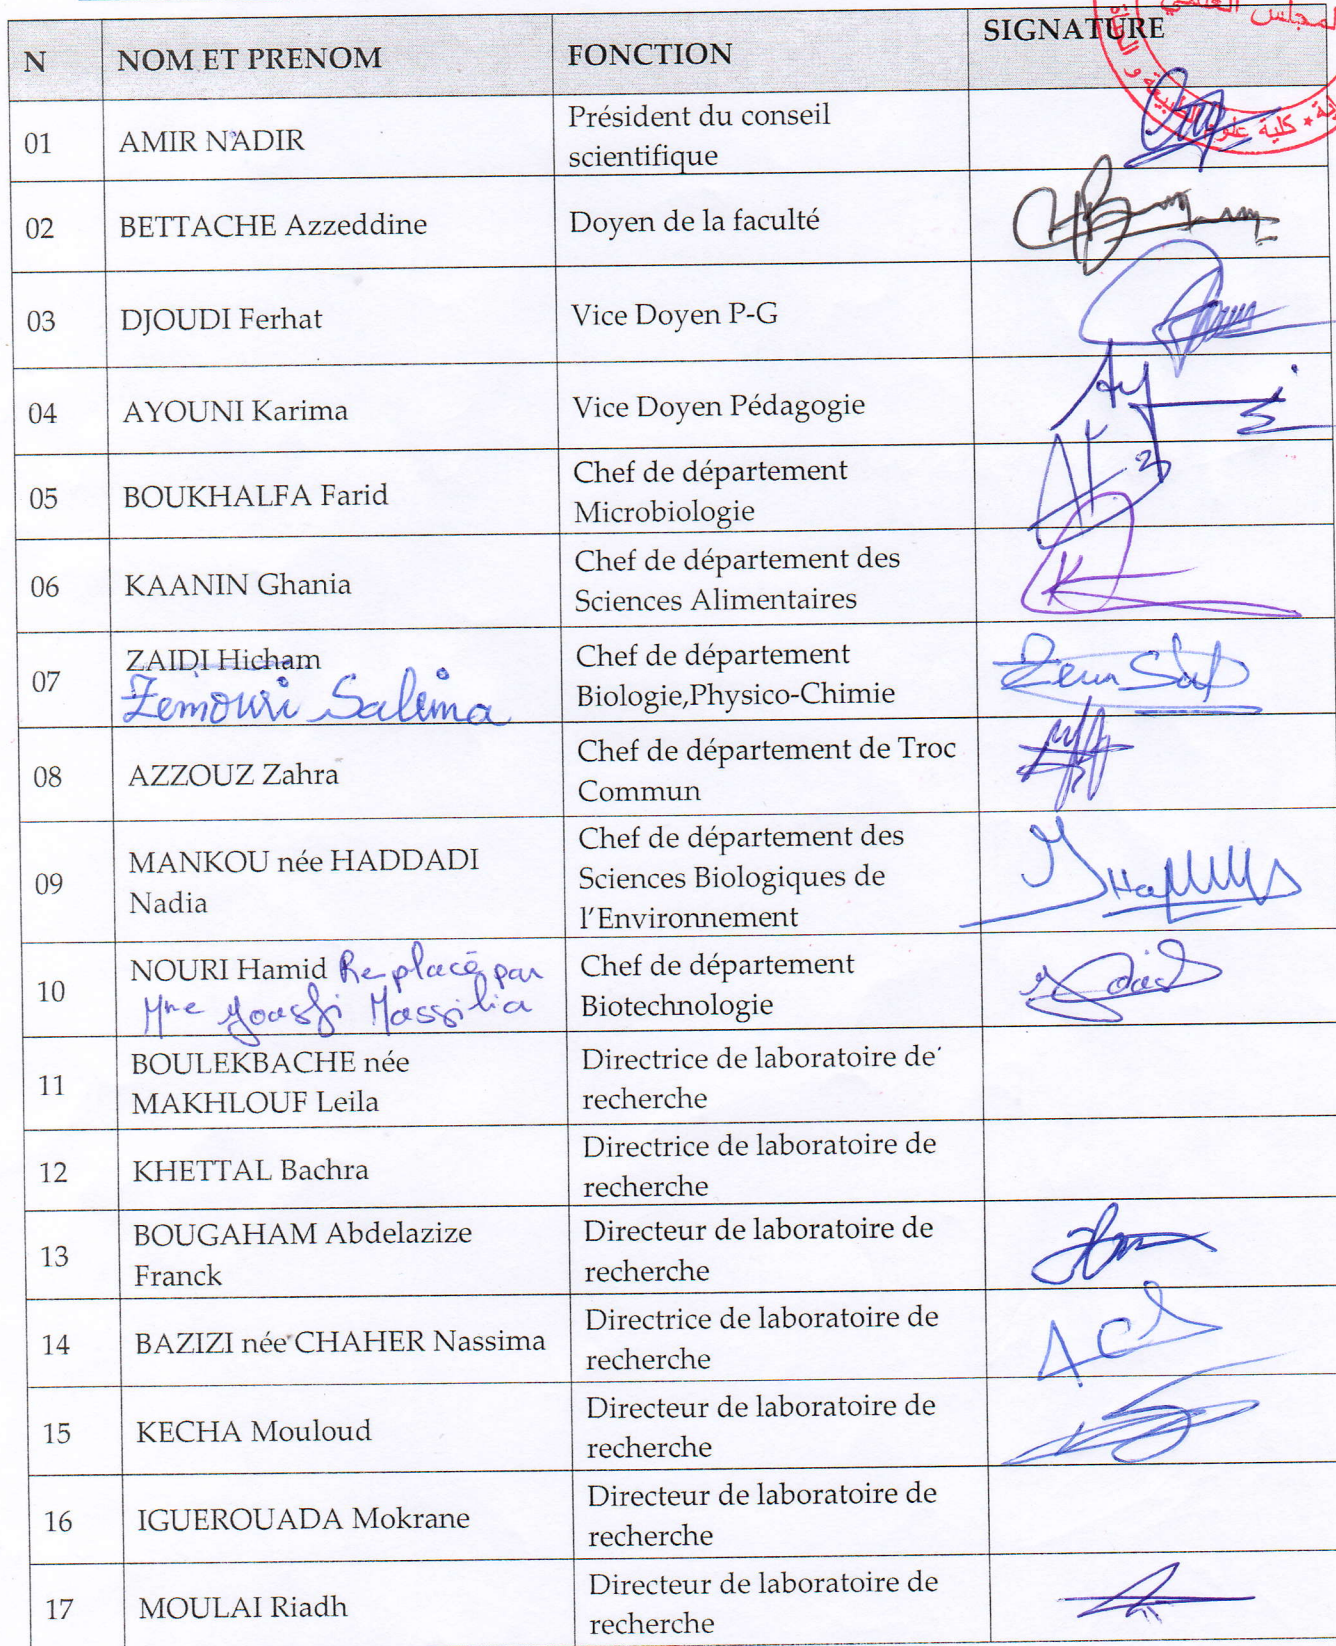 المجلس العلمي
N NOM ET PRENOM FONCTION SIGNATURE
كلية علوم الطبيعة و الحياة
01 AMIR NADIR Président du conseil
scientifique
02 BETTACHE Azzeddine Doyen de la faculté
03 DJOUDI Ferhat Vice Doyen P-G
04 AYOUNI Karima Vice Doyen Pédagogie
05 BOUKHALFA Farid Chef de département
Microbiologie
06 KAANIN Ghania Chef de département des
Sciences Alimentaires
07 ZAIDI Hicham Chef de département
Zemouri Salima Biologie,Physico-Chimie
08 AZZOUZ Zahra Chef de département de Troc
Commun
09 MANKOU née HADDADI
Nadia
Chef de département des
Sciences Biologiques de
l'Environnement
10 NOURI Hamid Remplacé par Chef de département
Mme Yousfi Massilia Biotechnologie
11 BOULEKBACHE née Directrice de laboratoire de
MAKHLOUF Leila recherche
12 KHETTAL Bachra Directrice de laboratoire de
recherche
13 BOUGAHAM Abdelazize Directeur de laboratoire de
Franck recherche
14 BAZIZI née CHAHER Nassima Directrice de laboratoire de
recherche
15 KECHA Mouloud Directeur de laboratoire de
recherche
16 IGUEROUADA Mokrane Directeur de laboratoire de
recherche
17 MOULAI Riadh Directeur de laboratoire de
recherche